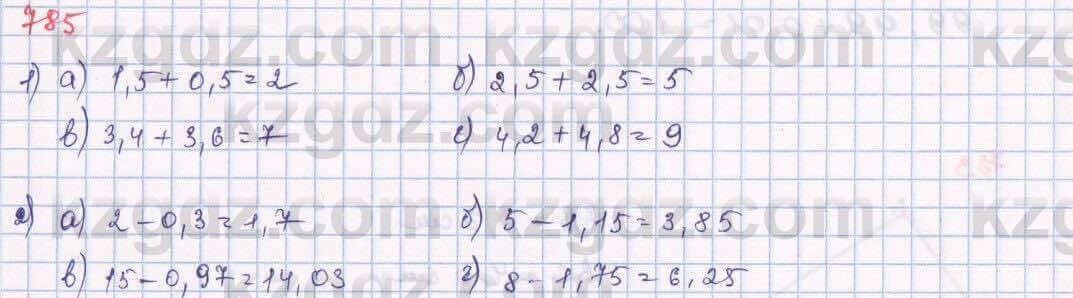 785
1) а) 1,5 + 0,5 = 2 б) 2,5 + 2,5 = 5
в) 3,4 + 3,6 = 7 г) 4,2 + 4,8 = 9
2) а) 2 - 0,3 = 1,7 б) 5 - 1,15 = 3,85
в) 15 - 0,97 = 14,03 г) 8 - 1,75 = 6,25
kzgdz.com kzgdz.com kzgdz.com
kzgdz.com
kzgdz.com kzgdz.com